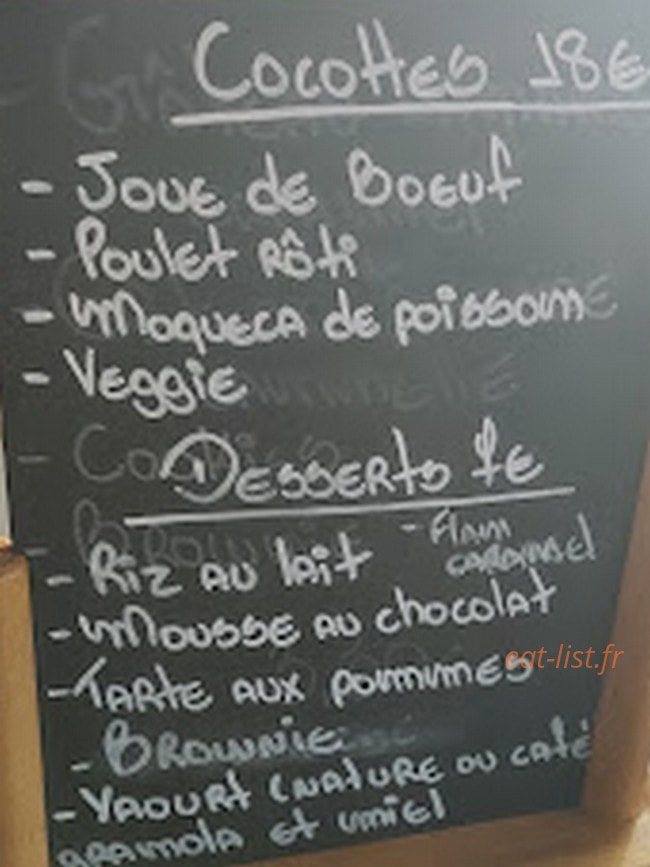 Cocottes 18€
- Joue de Boeuf
- Poulet Rôti
- Moqueca de poisson
- Veggie
Desserts €
- Riz au lait
- Flan caramel
- Mousse au chocolat
- Tarte aux pommes
- Brownie
- Yaourt (nature ou café
granola et miel
eat-list.fr